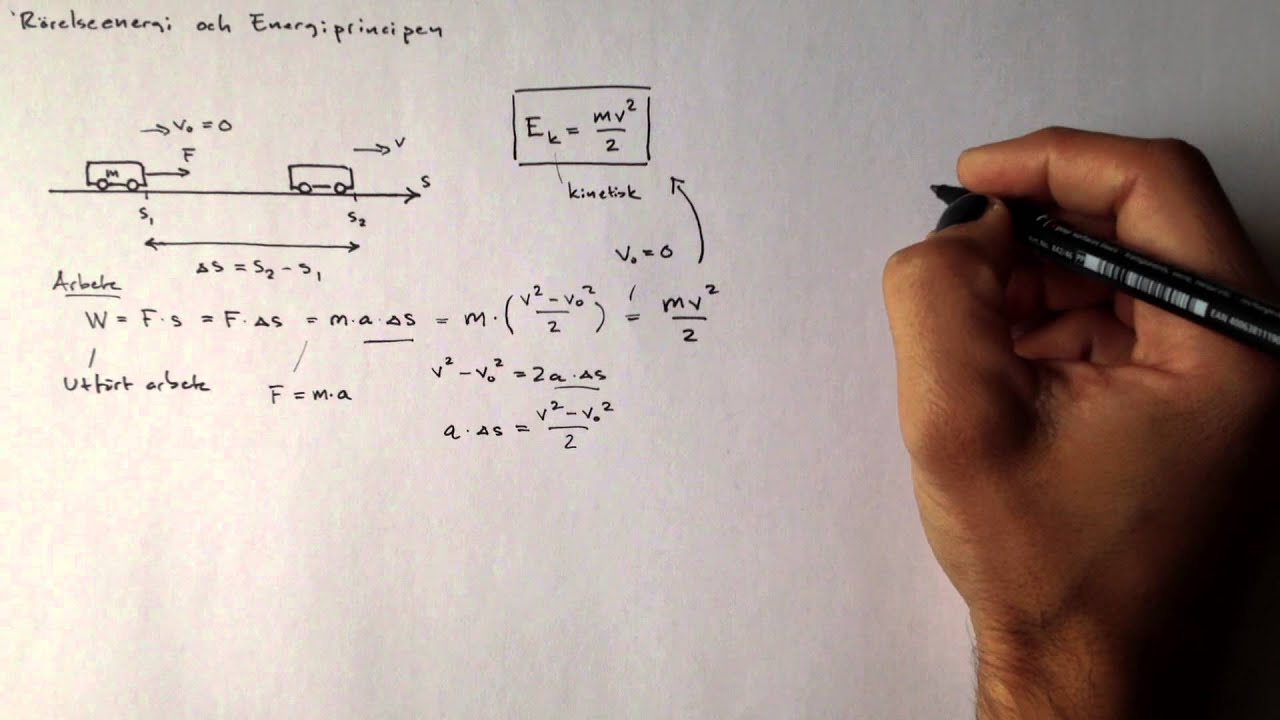 Rörelseenergi och Energiprincipen
v₀ = 0
F
m
v
s
s₁
s₂
Δs = s₂ - s₁
E_k = mv²/2
kinetisk
v₀ = 0
Arbete
W = F·s = F·Δs = m·a·Δs = m·(v² - v₀²/2) = mv²/2
Utfört arbete
F = m·a
v² - v₀² = 2a·Δs
a·Δs = v² - v₀²/2
EAN